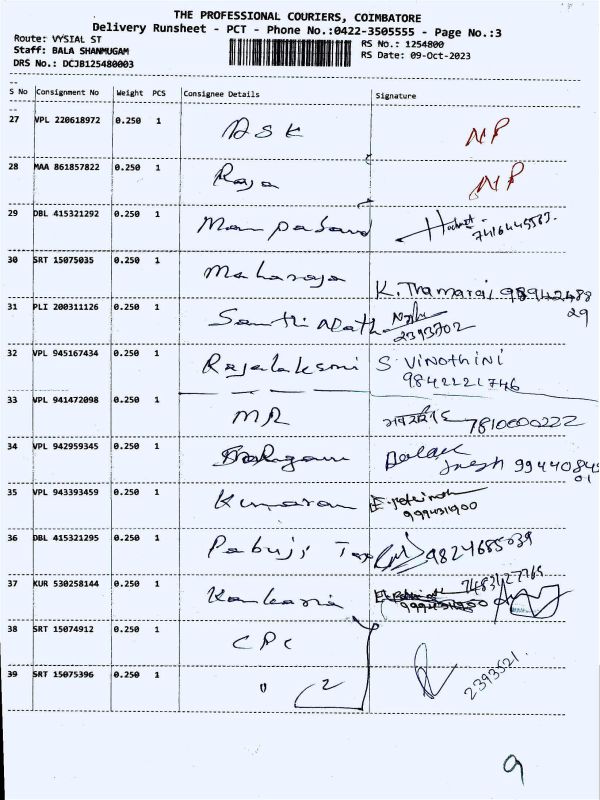 THE PROFESSIONAL COURIERS, COIMBATORE
Delivery Runsheet - PCT - Phone No.:0422-3505555 - Page No.:3
Route: VYSIAL ST
Staff: BALA SHANMUGAM
DRS No.: DCJB125480003
RS No.: 1254800
RS Date: 09-Oct-2023
S No Consignment No Weight PCS Consignee Details Signature
27 VPL 220618972 0.250 1 DSK NP
28 MAA 861857822 0.250 1 Raja NP
29 DBL 415321292 0.250 1 7416445583.
30 SRT 15075035 0.250 1 Maharaja K. Thamarai
29
31 PLI 200311126 0.250 1 Santhi Nath
2393702
32 VPL 945167434 0.250 1 Rajalaksmi S. Vinothini
9842221746
33 VPL 941472098 0.250 1 MR 7810000222
34 VPL 942959345 0.250 1 9944084
01
35 VPL 943393459 0.250 1 Kumaran
999431900
36 DBL 415321295 0.250 1 Pabuji Tex 9824685039
37 KUR 530258144 0.250 1 Kankaria
38 SRT 15074912 0.250 1 CPC
39 SRT 15075396 0.250 1 " (2 2393521.
9